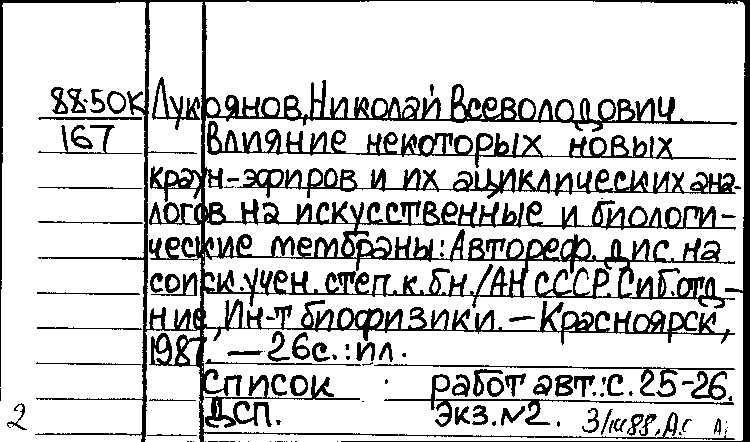 88-50К Лукоянов, Николай Всеволодович.
167 Влияние некоторых новых
краун-эфиров и их ациклических ана-
логов на искусственные и биологи-
ческие мембраны: Автореф. дис. на
соиск. учен. степ. к. б. н. / АН СССР. Сиб. отд-
ние, Ин-т биофизики. — Красноярск,
1987. — 26 с. : ил.
Список работ авт.: с. 25-26.
2 ДСП. Экз. №2.